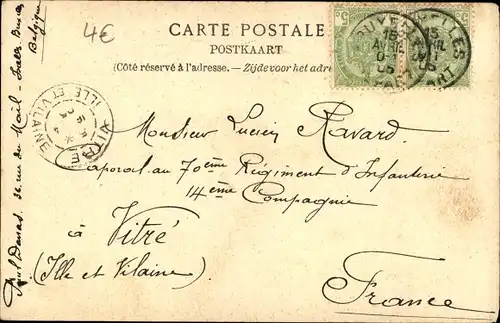 4€
CARTE POSTALE
POSTKAART
(Côté réservé à l'adresse. – Zijde voor het adre
5 5
BRUXELLES
15
AVRIL
DEPART
VITRE
ILLE ET VILAINE
Monsieur Lucien Ravard
Caporal au 70ème Régiment d'Infanterie
14ème Compagnie
à Vitré
(Ille et Vilaine)
France
36 rue du Mail – Ixelles Bruxelles
Belgique